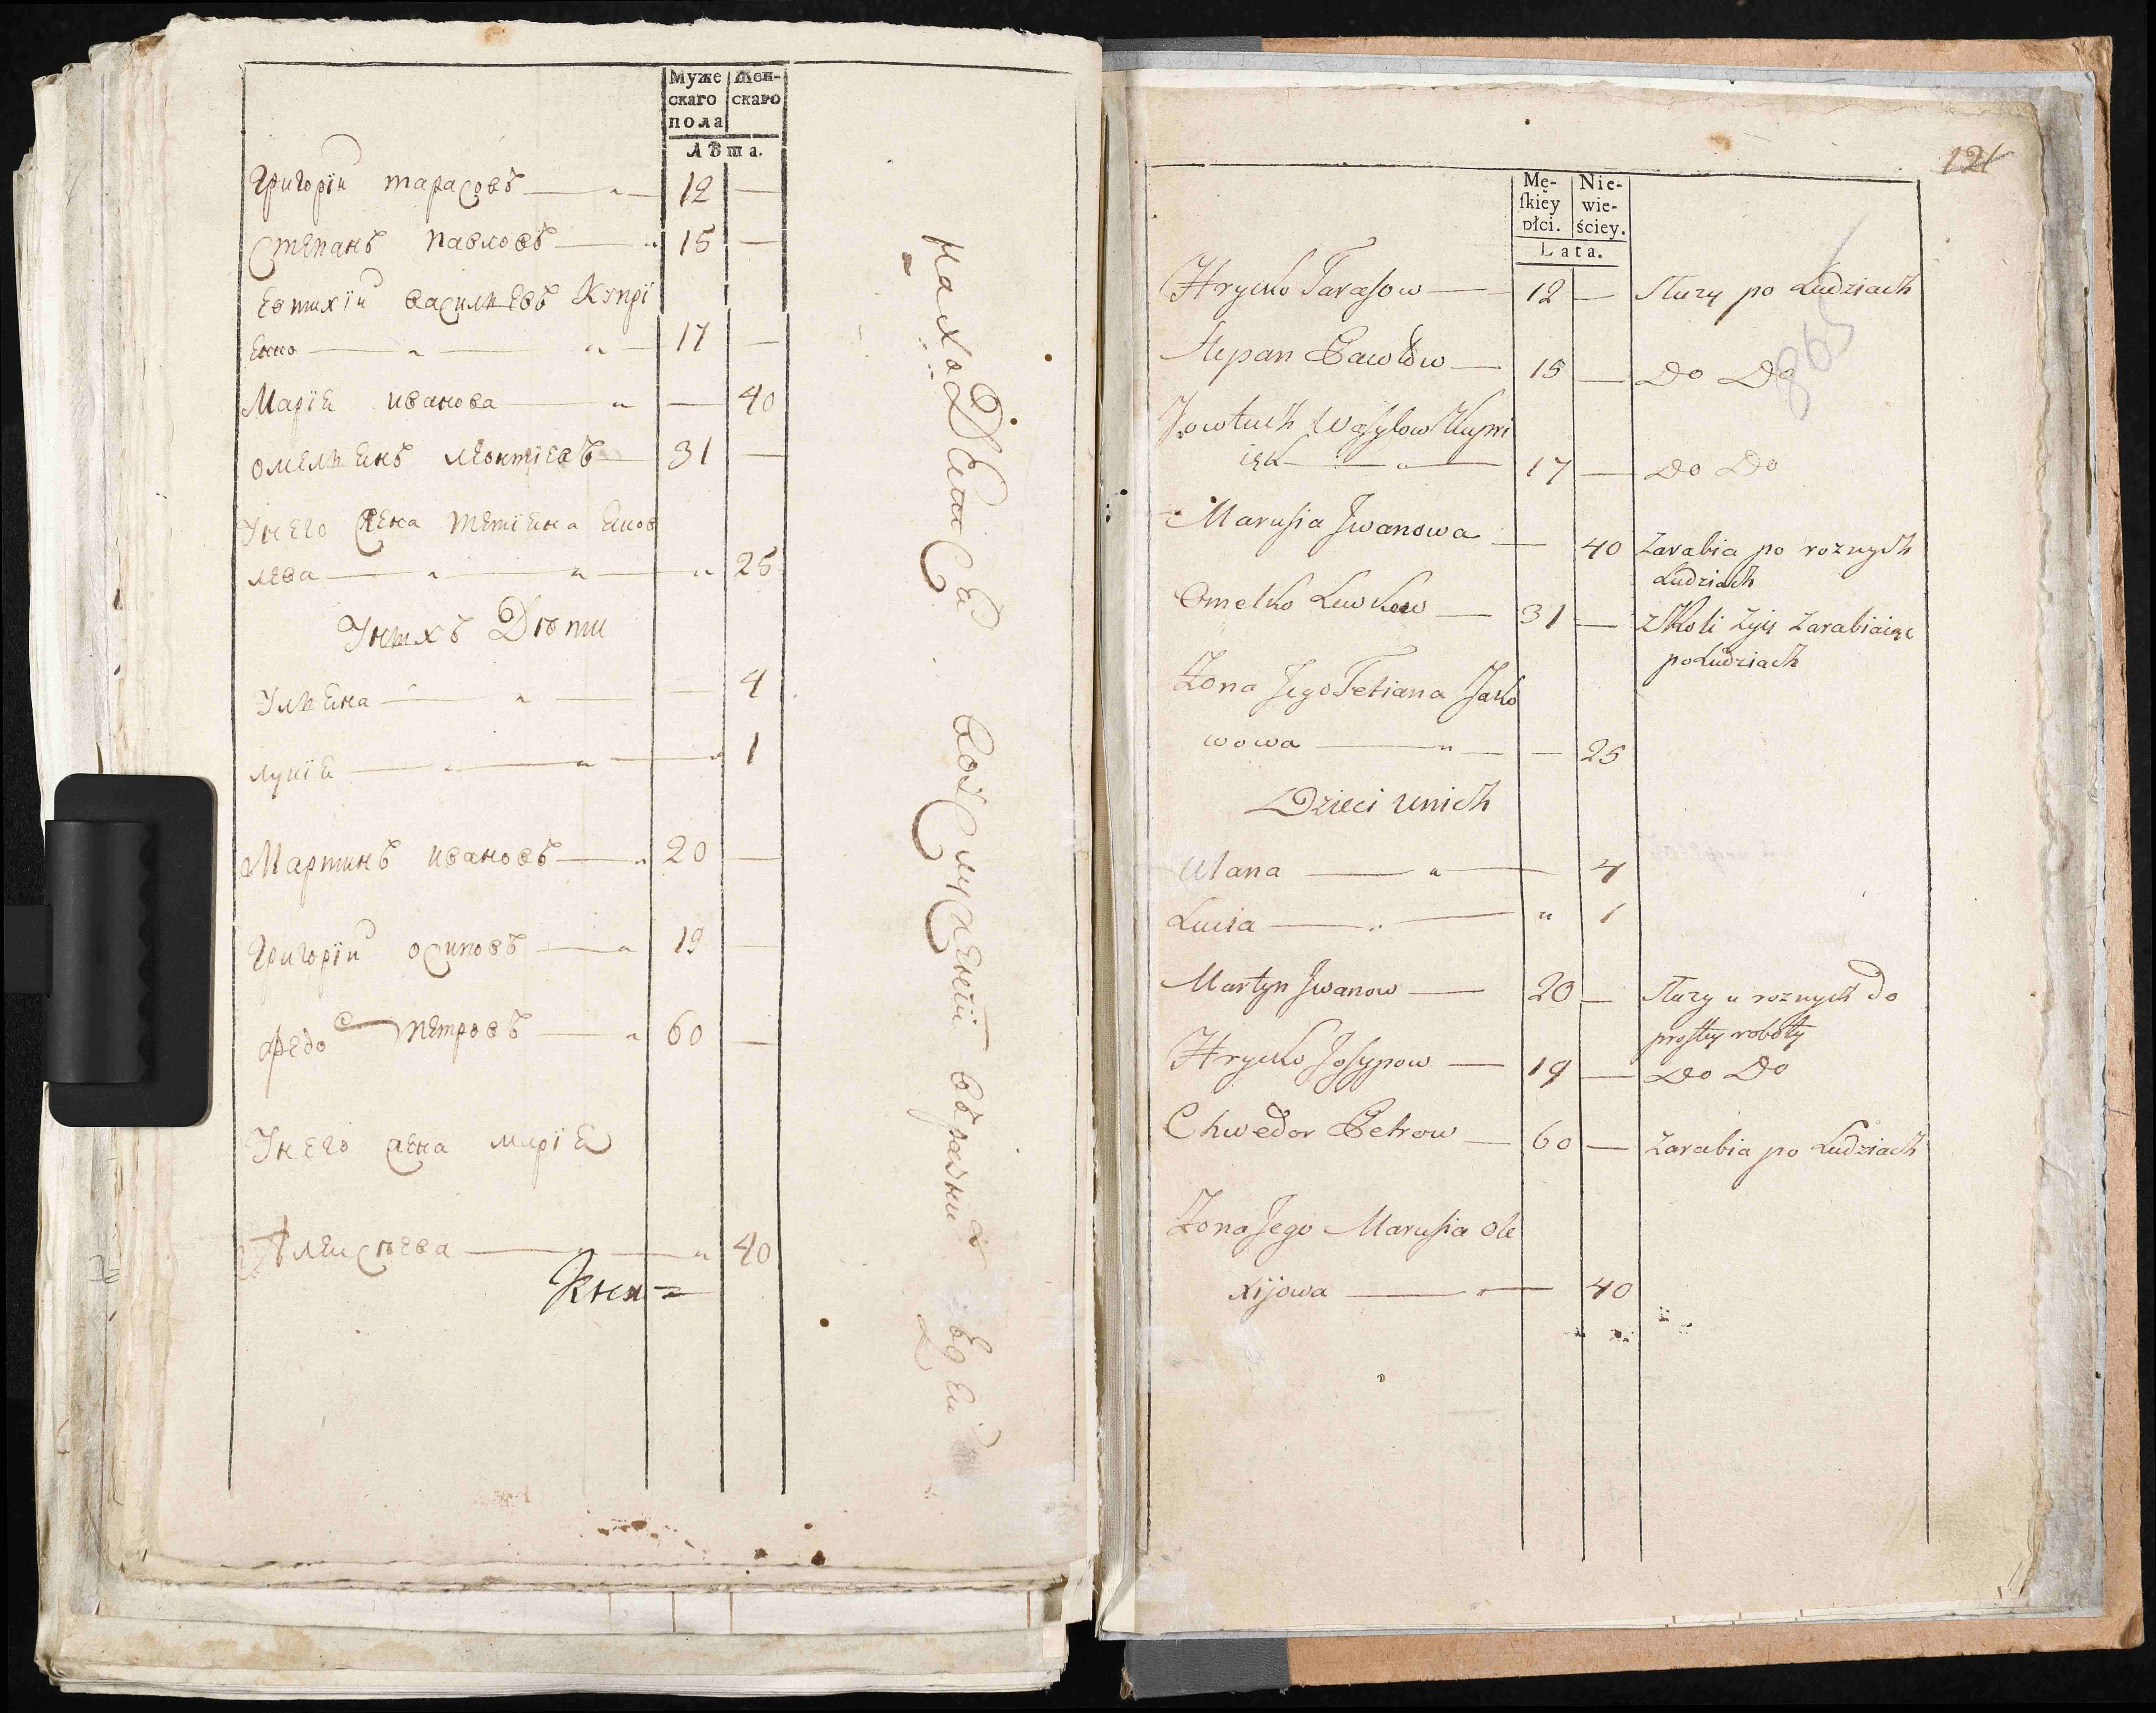 Муже Жен-
скаго скаго
пола
Лѣта.
Григорїй тарасовъ 12 —
Степанъ павловъ 15 —
Евтихїй васильевъ Купрї
енко 17 —
Марїя иванова — 40
омельянъ леонтїевъ 31 —
Унего жена тетїяна яков
лева 25
Унихъ Дѣти
Ульяна 4
лукїя 1
Мартинъ ивановъ 20 —
Григорїй осиповъ 19 —
федоръ петровъ 60 —
Унего жена марїя
Алексѣева 40
находятся воуслуженїи вразних
людей
121
865
Mę- Nie-
skiey wie-
płci. ściey.
Lata.
Hrycko Tarasow 12 — Służy po Ludziach
Stepan Pawłow 15 — Do Do
Jowtuch Wasylow Kupri
ięk 17 — Do Do
Marusia Jwanowa — 40 Zarabia po roznych
Ludziach
Omelko Lewkow 31 — zKoli Zyiy Zarabiaiąc
po Ludziach
Zona Jego Tetiana Jako
wowa — 25
Dzieci unich
Ulana " 4
Lucia " 1
Martyn Jwanow 20 — Służy u roznych do
prostey roboty
Hrycko Josypow 19 — Do Do
Chwedor Petrow 60 — Zarabia po Ludziach
Zona Jego Marusia Ole
xijowa 40